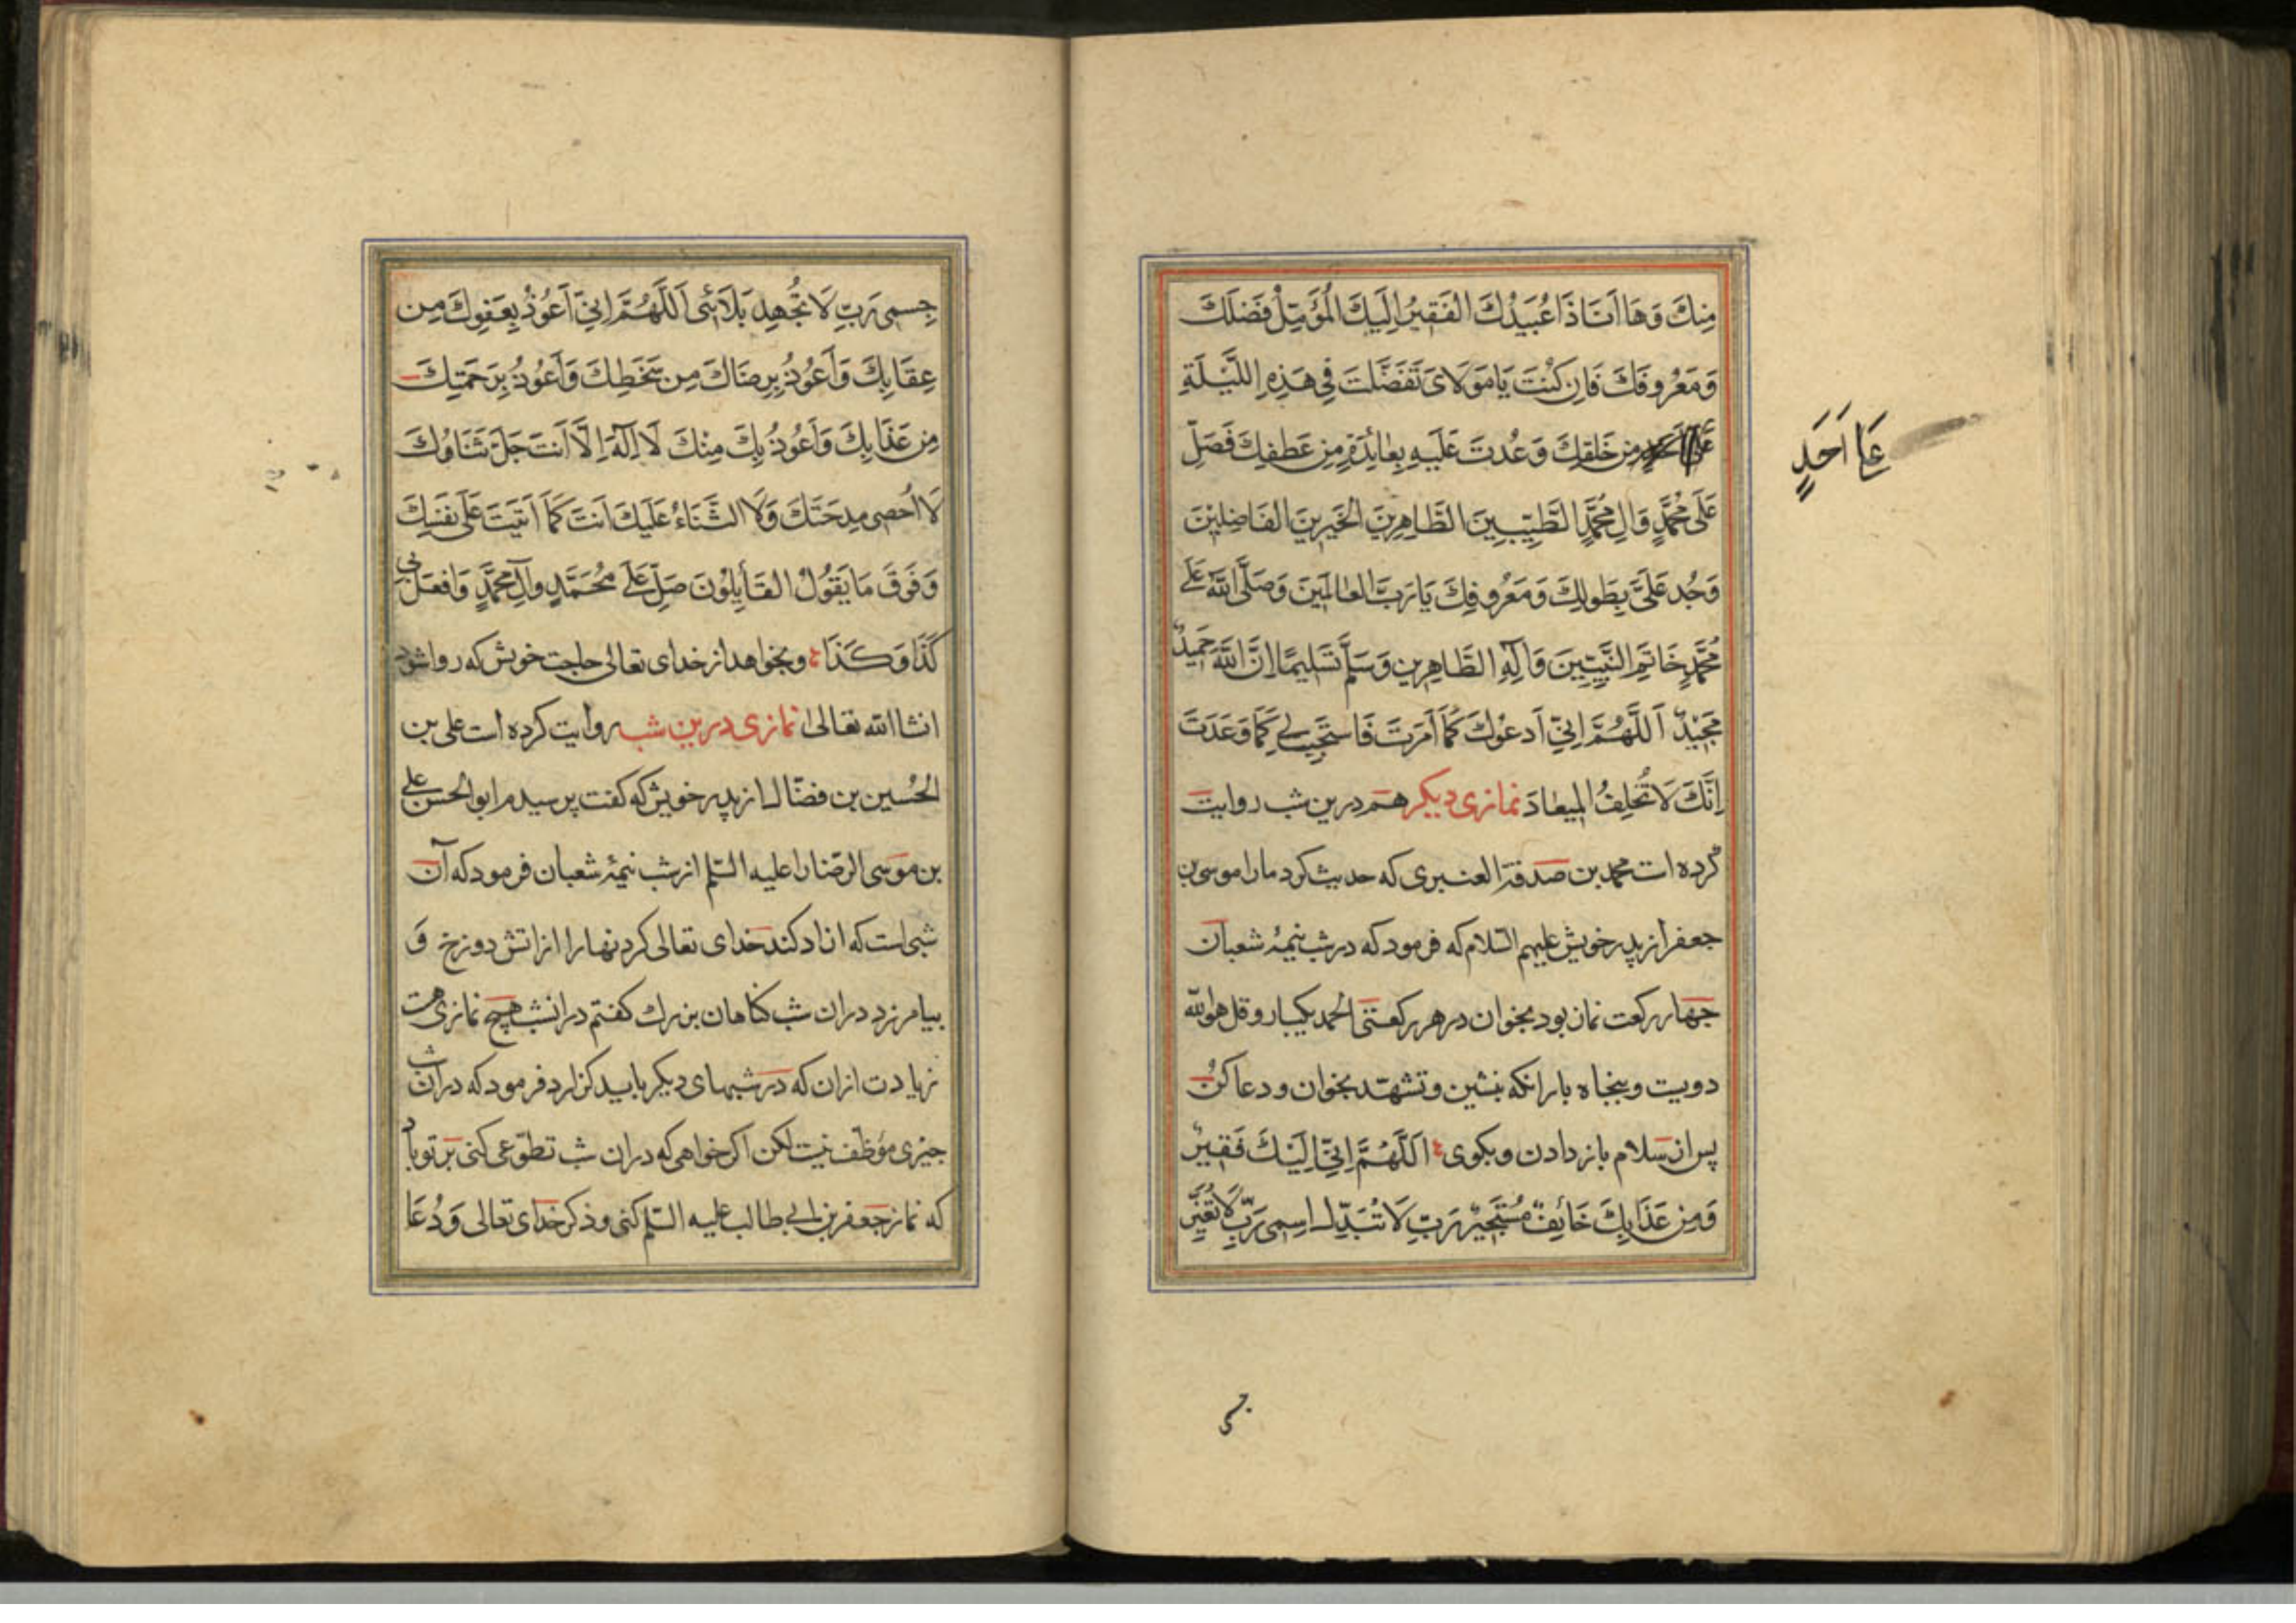 مِنكَ وَهَا اَنَا ذَا عُبَيْدُكَ الْفَقِيرُ اِلَيكَ الْمُؤَمِّلُ فَضْلَكَ
وَمَعْرُوفَكَ فَاِن كُنْتَ يَا مَوْلَاىَ تَفَضَّلتَ فِى هَذِهِ اللَّيْلَةِ
مِن خَلقِكَ وَعُدتَ عَلَيهِ بِعَائِدَةٍ مِن عَطفِكَ فَصَلِّ
عَلَى اَحَدٍ
عَلَى مُحَمَّدٍ وَالِ مُحَمَّدٍ الطَّيِّبِينَ الطَّاهِرِينَ الخَيِرِينَ الفَاضِلِينَ
وَجُد عَلَىَّ بِطَولِكَ وَمَعرُوفِكَ يَا رَبَّ العَالَمِينَ وَصَلَّى اللّٰهُ عَلَى
مُحَمَّدٍ خَاتَمِ النَّبِيِّينَ وَآلِهِ الطَّاهِرِين وَسَلَّمَ تَسلِيمًا اِنَّ اللّٰهَ حَمِيدٌ
مَجِيدٌ اَللَّهُمَّ اِنِّى اَدعُوكَ كَمَا اَمَرتَ فَاستَجِب لِى كَمَا وَعَدتَ
اِنَّكَ لَا تُخلِفُ المِيعَادَ نمازى ديكر هم درين شب روايت
كرده است محمد بن صدقة العنبرى كه حديث كرد مارا موسى بن
جعفر از پدر خويش عليهم السّلام كه فرمود كه در شب نيمهٔ شعبان
جهار ركعت نماز بود بخوان در هر ركعتى الحمد يكبار و قل هو اللّه
دويست و پنجاه بار انكه بنشين و تشهّد بخوان و دعا كن
پس از سلام باز دادن و بكوى اَللَّهُمَّ اِنِّى اِلَيْكَ فَقِيرٌ
وَمِن عَذَابِكَ خَائِفٌ مُستَجِيرٌ رَبِّ لَا تُبَدِّل اِسمِى رَبِّ لَا تُغَيِّر
جِسمِى رَبِّ لَا تُجهِد بَلَائِى اَللَّهُمَّ اِنِّى اَعُوذُ بِعَفوِكَ مِن
عِقَابِكَ وَاَعُوذُ بِرِضَاكَ مِن سَخَطِكَ وَاَعُوذُ بِرَحمَتِكَ
مِن عَذَابِكَ وَاَعُوذُ بِكَ مِنْكَ لَا اِلٰهَ اِلَّا اَنتَ جَلَّ ثَنَاؤُكَ
لَا اُحصِى مِدحَتَكَ وَلَا الثَّنَاءُ عَلَيكَ اَنتَ كَمَا اَثنَيتَ عَلَى نَفسِكَ
وَفَوقَ مَا يَقُولُ القَائِلُونَ صَلِّ عَلَى مُحَمَّدٍ وَآلِ مُحَمَّدٍ وَافعَل بِى
كَذَا وَكَذَا و بخواهد از خداى تعالى حاجت خويش كه روا شود
انشا اللّه تعالى نمازى درين شب روايت كرده است على بن
الحُسين بن فضّال از پدر خويش كه كفت پرسيدم ابو الحسن على
بن موسى الرّضا را عليه السّلم از شب نيمهٔ شعبان فرمود كه آن
شبى است كه ازاد كند خداى تعالى كردنها را از اتش دوزخ و
بيامرزد در ان شب كناهان بزرك كفتم در انشب هيچ نمازى هست
زيادت ازان كه در شبهاى ديكر بايد كزارد فرمود كه در ان شب
جيزى موظّف نيست لكن اكر خواهى كه در ان شب تطوّعى كنى بر تو باد
كه نماز جعفر بن ابى طالب عليه السّلم كنى و ذكر خداى تعالى وَ دُعَا